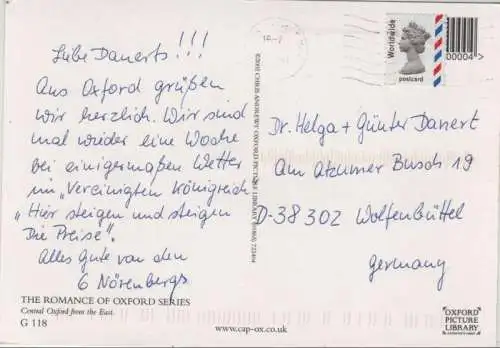 Liebe Danerts!!!
Aus Oxford grüßen
wir herzlich. Wir sind
mal wieder eine Woche
bei einigermaßen Wetter
im „Vereinigten Königreich
„Hier steigen und steigen
Die Preise".
Alles Gute von den
6 Nörenbergs
THE ROMANCE OF OXFORD SERIES
Central Oxford from the East.
G 118
OXFORD PICTURE LIBRARY
Worldwide
postcard
00004
Dr. Helga + Günter Danert
Am Atzumer Busch 19
D-38302 Wolfenbüttel
Germany
www.cap-ox.co.uk
OXFORD
PICTURE
LIBRARY